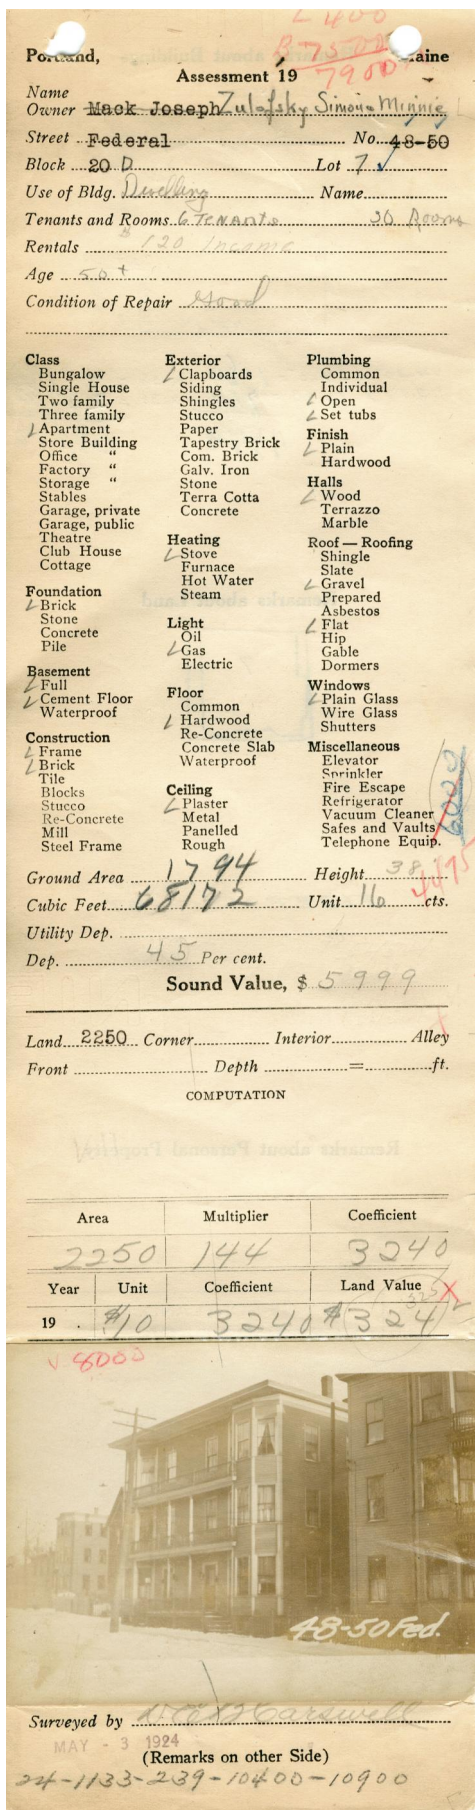 L 400
B 7500
7900
Portland, Maine
Assessment 19
Name
Owner Mack Joseph Zulofsky Simon & Minnie
Street Federal No. 48-50
Block 20 D Lot 7
Use of Bldg. Dwelling Name
Tenants and Rooms 6 Tenants 30 Rooms
Rentals $120 Income
Age 50+
Condition of Repair Good
Class
Bungalow
Single House
Two family
Three family
Apartment
Store Building
Office "
Factory "
Storage "
Stables
Garage, private
Garage, public
Theatre
Club House
Cottage
Foundation
Brick
Stone
Concrete
Pile
Basement
Full
Cement Floor
Waterproof
Construction
Frame
Brick
Tile
Blocks
Stucco
Re-Concrete
Mill
Steel Frame
Exterior
Clapboards
Siding
Shingles
Stucco
Paper
Tapestry Brick
Com. Brick
Galv. Iron
Stone
Terra Cotta
Concrete
Heating
Stove
Furnace
Hot Water
Steam
Light
Oil
Gas
Electric
Floor
Common
Hardwood
Re-Concrete
Concrete Slab
Waterproof
Ceiling
Plaster
Metal
Panelled
Rough
Plumbing
Common
Individual
Open
Set tubs
Finish
Plain
Hardwood
Halls
Wood
Terrazzo
Marble
Roof — Roofing
Shingle
Slate
Gravel
Prepared
Asbestos
Flat
Hip
Gable
Dormers
Windows
Plain Glass
Wire Glass
Shutters
Miscellaneous
Elevator
Sprinkler
Fire Escape
Refrigerator
Vacuum Cleaner
Safes and Vaults
Telephone Equip.
6000
4475
Ground Area 1794 Height 38
Cubic Feet 68172 Unit 16 cts.
Utility Dep.
Dep. 45 Per cent.
Sound Value, $ 5999
Land 2250 Corner Interior Alley
Front Depth = ft.
COMPUTATION
Area Multiplier Coefficient
2250 144 3240
Year Unit Coefficient Land Value
325
19 . $10 3240 $324
8000
48-50 Fed.
Surveyed by Carswell
MAY - 3 1924
(Remarks on other Side)
24-1133-239-10400-10900